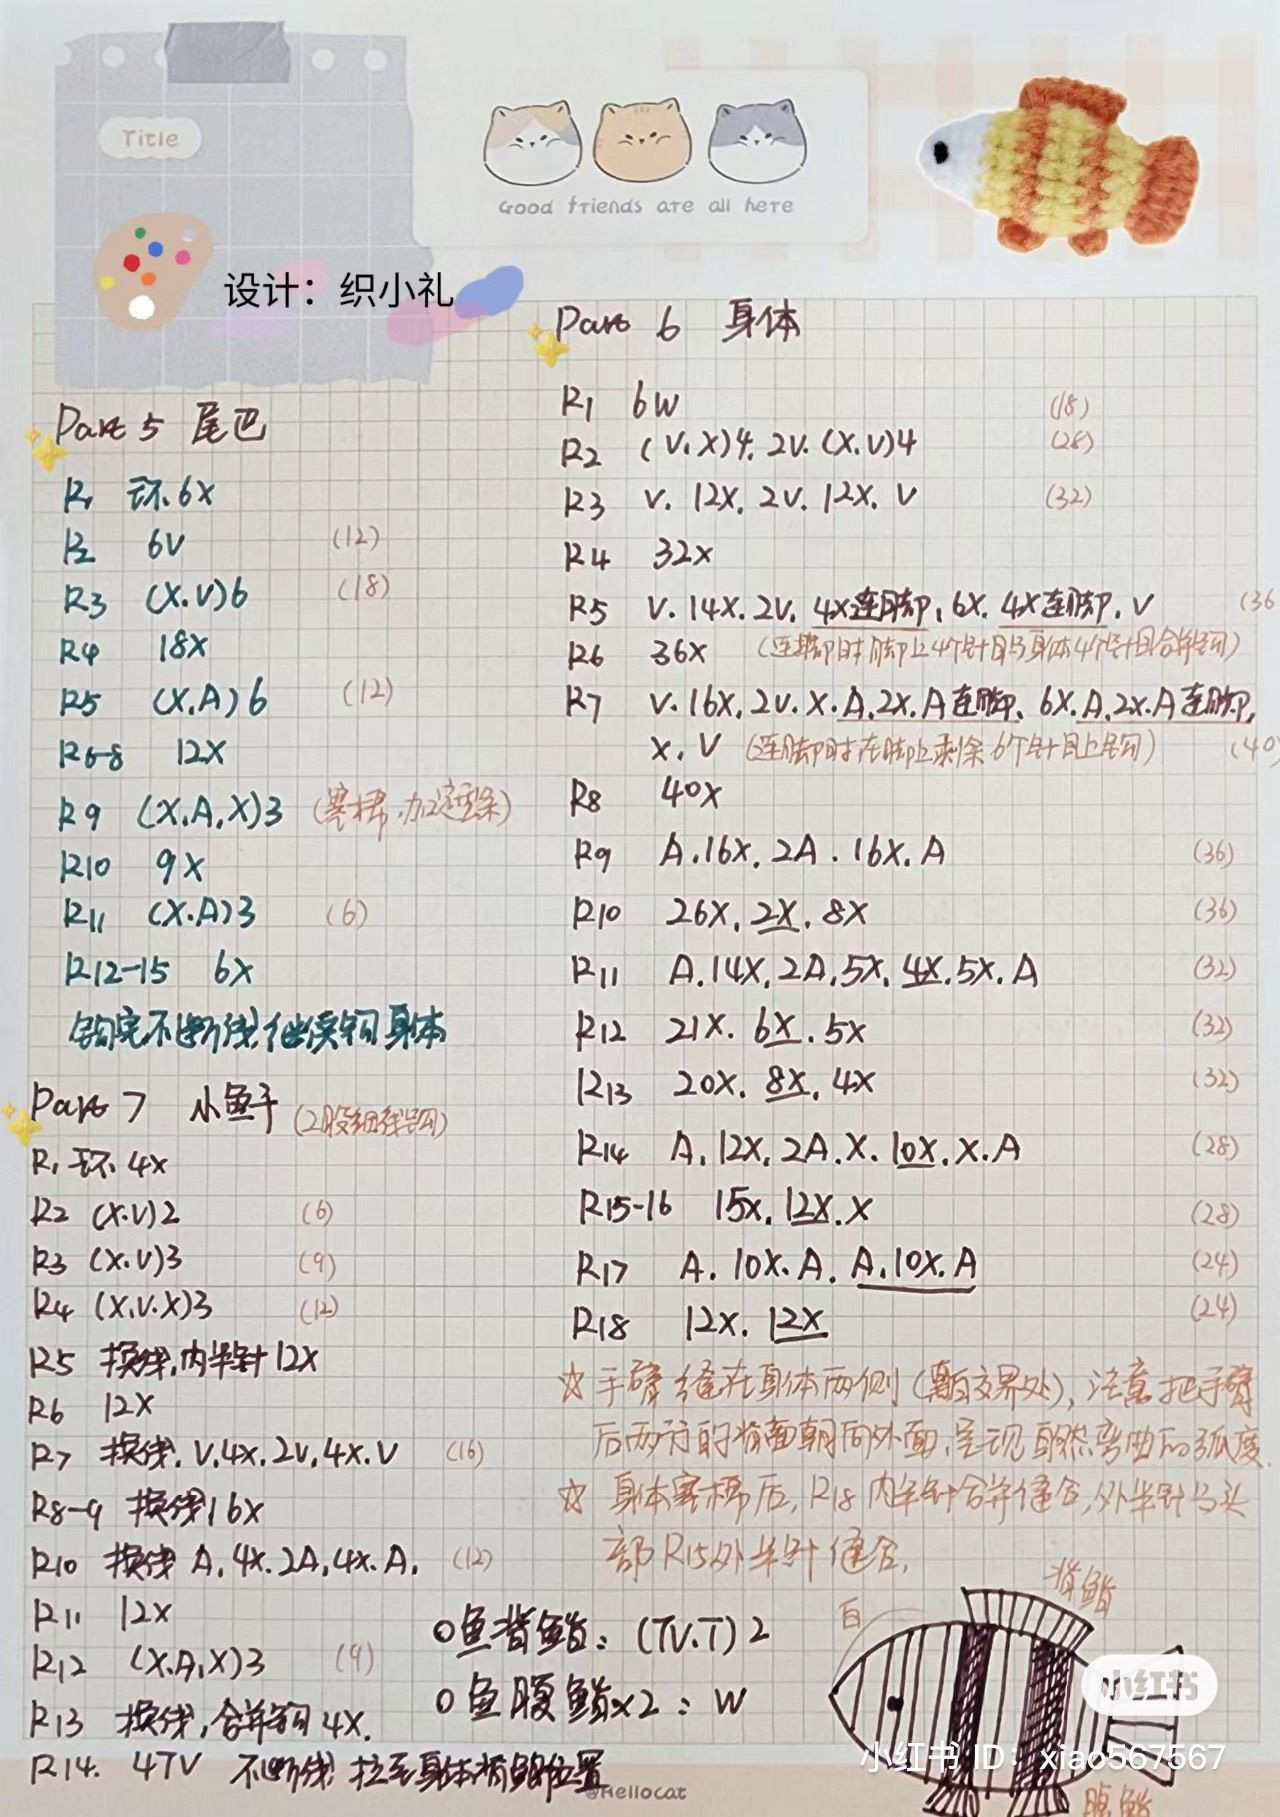 Title
Good friends are all here
设计：织小礼
Part 5 尾巴
R1 环.6X
R2 6V (12)
R3 (X.V)6 (18)
R4 18X
R5 (X.A)6 (12)
R6-8 12X
R9 (X.A.X)3 (塞棉.加定型条)
R10 9X
R11 (X.A)3 (6)
R12-15 6X
钩完不断线,继续钩身体
Part 7 小鱼干 (2股细线钩)
R1 环.4X
R2 (X.V)2 (6)
R3 (X.V)3 (9)
R4 (X.V.X)3 (12)
R5 换线,内半针12X
R6 12X
R7 换线.V.4X.2V.4X.V (16)
R8-9 换线16X
R10 换线 A.4X.2A.4X.A. (12)
R11 12X
R12 (X.A.X)3 (9)
R13 换线,合并钩4X.
R14. 4TV 不断线,拉至身体背鳍位置
Part 6 身体
R1 6W (18)
R2 (V.X)4.2V.(X.V)4 (28)
R3 V.12X.2V.12X.V (32)
R4 32X
R5 V.14X.2V.4X连脚.6X.4X连脚.V (36
R6 36X (连脚时脚上4个针目与身体4个针目合并钩)
R7 V.16X.2V.X.A.2X.A连脚.6X.A.2X.A连脚.
X.V (连脚时在脚上剩余6个针目上钩) (40)
R8 40X
R9 A.16X.2A.16X.A (36)
R10 26X.2X.8X (36)
R11 A.14X.2A.5X.4X.5X.A (32)
R12 21X.6X.5X (32)
R13 20X.8X.4X (32)
R14 A.12X.2A.X.10X.X.A (28)
R15-16 15X.12X.X (28)
R17 A.10X.A.A.10X.A (24)
R18 12X.12X (24)
☆ 手臂缝在身体两侧(黑白交界处),注意把手臂
后两行的背面朝向外面,呈现自然弯曲的弧度.
☆ 身体塞棉后,R18内半针合并缝合,外半针与头
部R15外半针缝合.
○鱼背鳍:(TV.T)2
○鱼腹鳍x2:W
白
背鳍
腹鳍
小红书
小红书 ID：xiao567567
@Hellocat